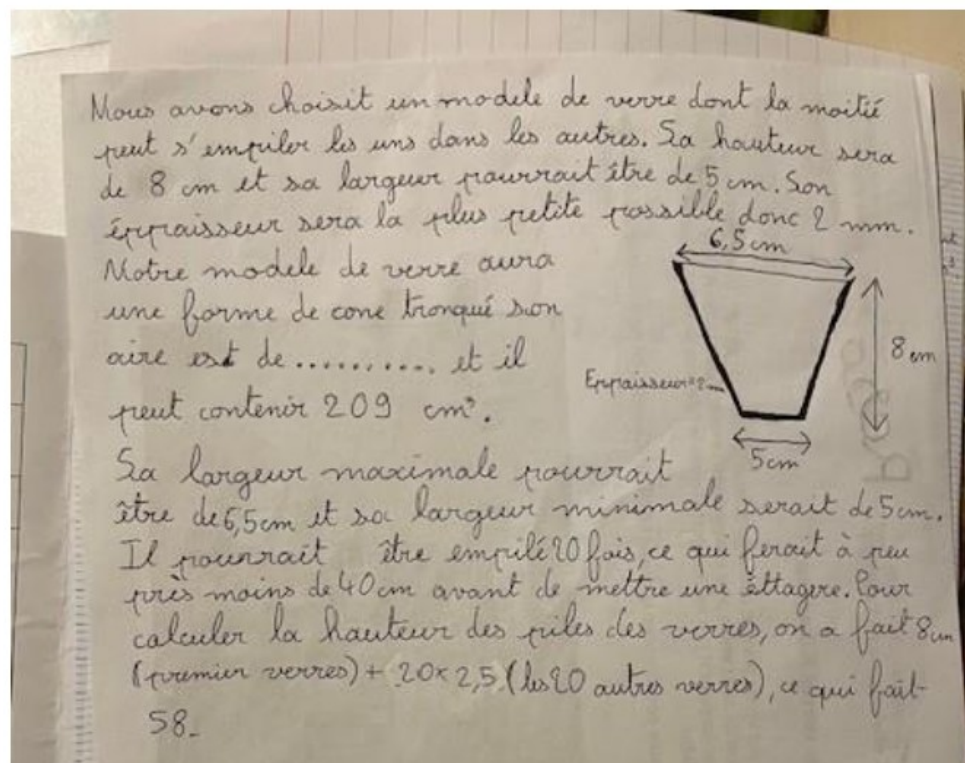 Nous avons choisit un modele de verre dont la moitié
peut s'empiler les uns dans les autres. Sa hauteur sera
de 8 cm et sa largeur pourrait être de 5 cm. Son
éppaisseur sera la plus petite possible donc 2 mm.
Notre modele de verre aura
une forme de cone tronqué son
aire est de .......... et il
peut contenir 209 cm³.
6,5cm
8 cm
Eppaisseur=2
5cm
Sa largeur maximale pourrait
être de 6,5cm et sa largeur minimale serait de 5cm.
Il pourrait être empilé 20 fois, ce qui ferait à peu
près moins de 40 cm avant de mettre une éttagere. Pour
calculer la hauteur des piles des verres, on a fait 8cm
(premier verres) + 20x2,5 (les 20 autres verres), ce qui fait
58.